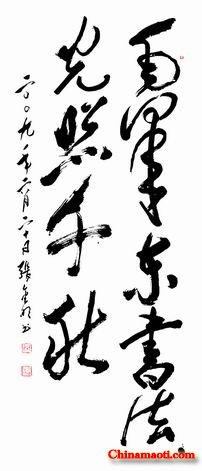 毛澤东書法
光照千秋
二〇〇九年六月二十日張
Chinamaoti.com